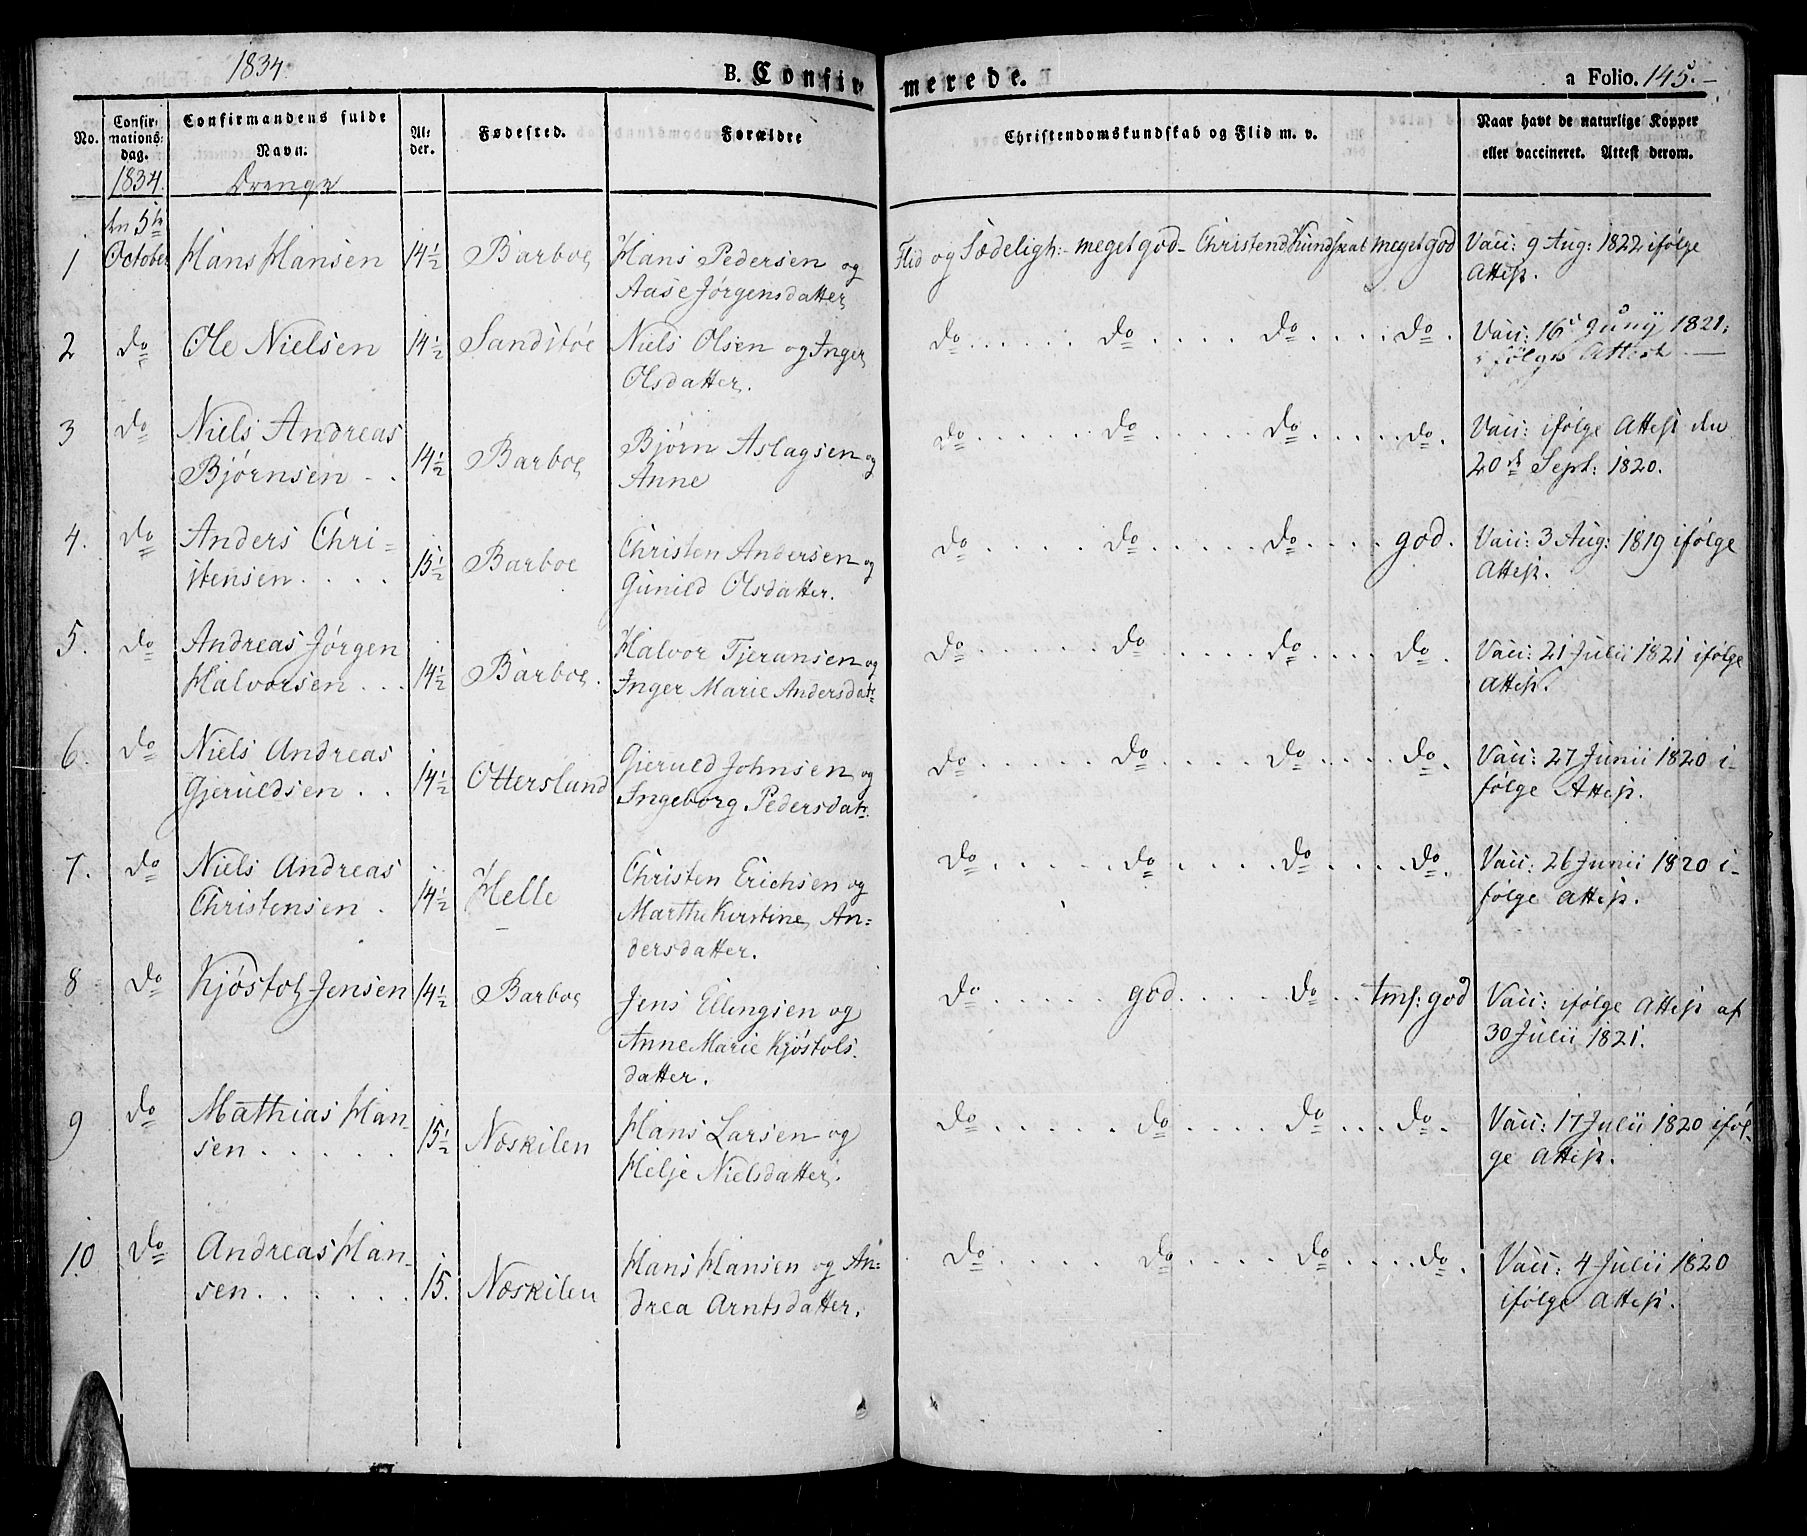 1834.
B. Confirmerede.
a Folio. 145.
No.
Confirmationsdag.
Confirmandens fulde Navn.
Alder.
Fødested.
Forældre
Christendomskundskab og Flid m. v.
Naar havt de naturlige Kopper eller vaccineret. Attest derom.
1834.
Drenge
dn 5te
1 October Hans Hansen 14½ Barboe Hans Pedersen og
Aase Jørgensdatter
Flid og Sædeligh: meget god - Christend Kundskab meget god
Vacc: 9 Aug: 1822 ifølge
Attest.
2 do Ole Nielsen 14½ Sandstøe Niels Olsen og Inger
Olsdatter.
do ..... do ..... do .... do.
Vacc: 16d Junij 1821.
ifølge Attest. —
3 do Niels Andreas
Bjørnsen - . 14½ Barboe Bjørn Aslagsen og
Anne
do ..... do ..... do .... do.
Vacc: ifølge Attest den
20de Sept: 1820.
4. do Anders Chri-
stensen.... 15½ Barboe Christen Andersen og
Gunild Olsdatter.
do ..... do ..... do .... god.
Vacc: 3 Aug: 1819 ifølge
Attest.
5. do Andreas Jørgen
Halvorsen ... 14½ Barboe. Halvor Tjeransen og
Inger Marie Andersdatr
do ..... do ..... do .... do.
Vacc: 21 Julii 1821 ifølge
Attest.
6. do Niels Andreas
Gjeruldsen .. 14½ Otterslund Gjeruld Johnsen og
Ingeborg Pedersdatr.
do ..... do ..... do .... do.
Vacc: 27 Junii 1820 i-
følge Attest.
7. do Niels Andreas
Christensen . 14½ Helle Christen Erichsen og
Marthe Kirstine An=
dersdatter.
do ..... do ..... do .... do.
Vacc: 26 Junii 1820 i-
følge Attest.
8 do Kjøstol Jensen 14½ Barboe Jens Ellingsen og
Anne Marie Kjøstols-
datter.
do ..... god ..... do .. tms: god
Vacc: ifølge Attest af
30 Julii 1821.
9 do Mathias Han-
sen ..... 15½ Næskilen Hans Larsen og
Helje Nielsdatter.
do ..... do ..... do ... do.
Vacc: 17 Julii 1820 iføl-
ge Attest.
10 do Andreas Han-
sen ..... 15. Næskilen Hans Hansen og An=
drea Arntsdatter.
do ..... do ..... do .... do.
Vacc: 4 Julii 1820
ifølge Attest.